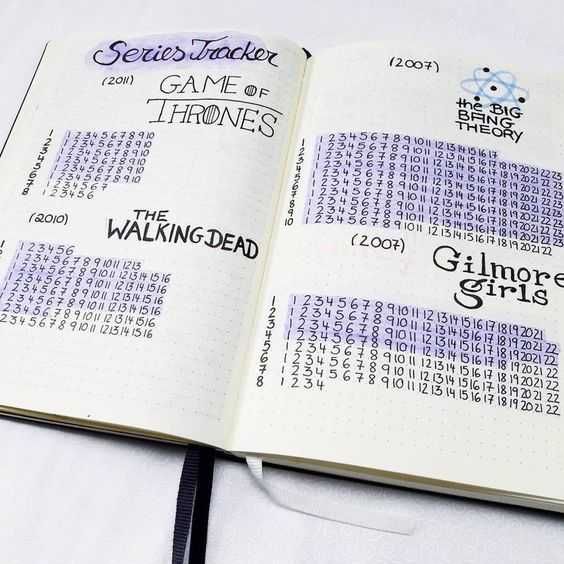 Series Tracker
(2011) GAME OF
THRONES
1 1 2 3 4 5 6 7 8 9 10
2 1 2 3 4 5 6 7 8 9 10
3 1 2 3 4 5 6 7 8 9 10
4 1 2 3 4 5 6 7 8 9 10
5 1 2 3 4 5 6 7 8 9 10
6 1 2 3 4 5 6 7 8 9 10
7 1 2 3 4 5 6 7
8 1 2 3 4 5 6
(2010) THE
WALKING DEAD
1 2 3 4 5 6
1 2 3 4 5 6 7 8 9 10 11 12 13
1 2 3 4 5 6 7 8 9 10 11 12 13 14 15 16
1 2 3 4 5 6 7 8 9 10 11 12 13 14 15 16
1 2 3 4 5 6 7 8 9 10 11 12 13 14 15 16
1 2 3 4 5 6 7 8 9 10 11 12 13 14 15 16
1 2 3 4 5 6 7 8 9 10 11 12 13 14 15 16
1 2 3 4 5 6 7 8 9 10 11 12 13 14 15 16
(2007)
the BIG
BANG
THEORY
1 1 2 3 4 5 6 7 8 9 10 11 12 13 14 15 16 17
2 1 2 3 4 5 6 7 8 9 10 11 12 13 14 15 16 17 18 19 20 21 22 23
3 1 2 3 4 5 6 7 8 9 10 11 12 13 14 15 16 17 18 19 20 21 22 23
4 1 2 3 4 5 6 7 8 9 10 11 12 13 14 15 16 17 18 19 20 21 22 23
5 1 2 3 4 5 6 7 8 9 10 11 12 13 14 15 16 17 18 19 20 21 22 23
6 1 2 3 4 5 6 7 8 9 10 11 12 13 14 15 16 17 18 19 20 21 22 23
7 1 2 3 4 5 6 7 8 9 10 11 12 13 14 15 16 17 18 19 20 21 22 23
8 1 2 3 4 5 6 7 8 9 10 11 12 13 14 15 16 17 18 19 20 21 22 23
9 1 2 3 4 5 6 7 8 9 10 11 12 13 14 15 16 17 18 19 20 21 22 23
10 1 2 3 4 5 6 7 8 9 10 11 12 13 14 15 16 17 18 19 20 21 22
(2007) Gilmore
girls
1 1 2 3 4 5 6 7 8 9 10 11 12 13 14 15 16 17 18 19 20 21
2 1 2 3 4 5 6 7 8 9 10 11 12 13 14 15 16 17 18 19 20 21 22
3 1 2 3 4 5 6 7 8 9 10 11 12 13 14 15 16 17 18 19 20 21 22
4 1 2 3 4 5 6 7 8 9 10 11 12 13 14 15 16 17 18 19 20 21 22
5 1 2 3 4 5 6 7 8 9 10 11 12 13 14 15 16 17 18 19 20 21 22
6 1 2 3 4 5 6 7 8 9 10 11 12 13 14 15 16 17 18 19 20 21 22
7 1 2 3 4 5 6 7 8 9 10 11 12 13 14 15 16 17 18 19 20 21 22
8 1 2 3 4